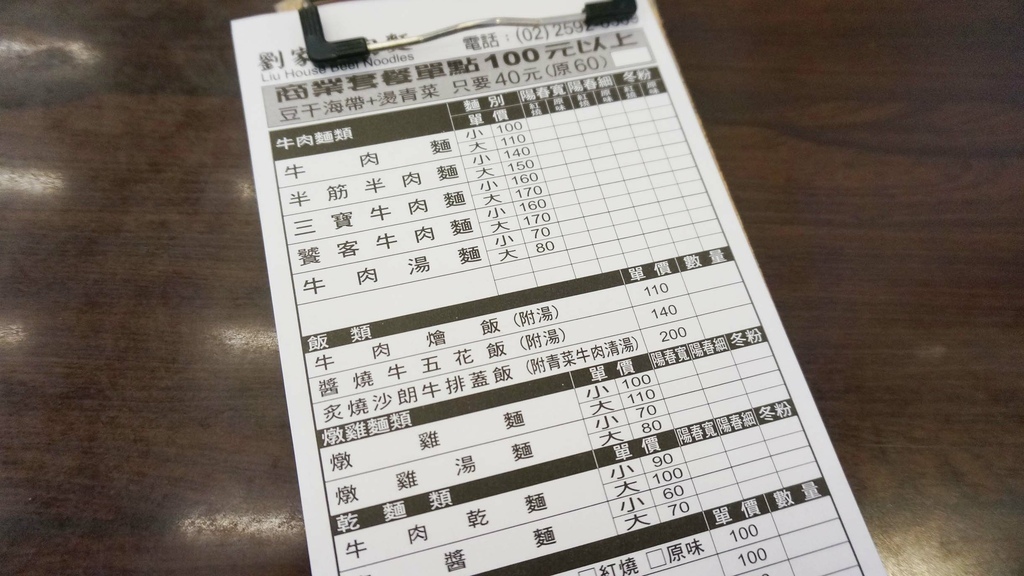 劉家
電話：(02)259
Liu House Beef Noodles
商業套餐單點100元以上
豆干海帶+燙青菜 只要40元(原60)
牛肉麵類 麵別 陽春寬 陽春細 冬粉
單價
牛肉麵 小 100
大 110
半筋半肉麵 小 140
大 150
三寶牛肉麵 小 160
大 170
饕客牛肉麵 小 160
大 170
牛肉湯麵 小 70
大 80
飯類 單價 數量
牛肉燴飯(附湯) 110
醬燒牛五花飯(附湯) 140
炙燒沙朗牛排蓋飯(附青菜牛肉清湯) 200
燉雞麵類 單價 陽春寬 陽春細 冬粉
燉雞麵 小 100
大 110
燉雞湯麵 小 70
大 80
乾麵類 單價 陽春寬 陽春細 冬粉
牛肉乾麵 小 90
大 100
醬麵 小 60
大 70
單價 數量
□紅燒 □原味 100
100